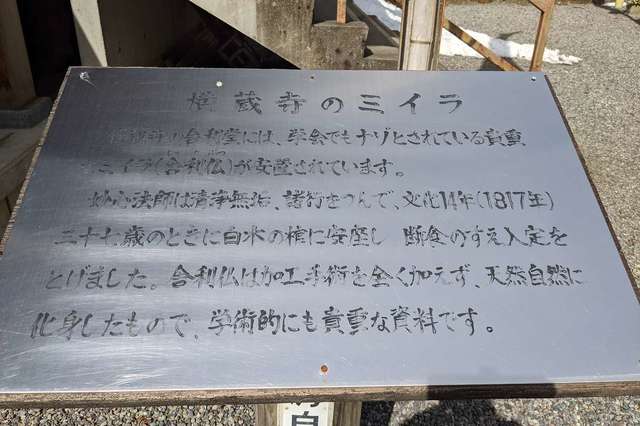 横蔵寺のミイラ
横蔵寺の舎利堂には、学会でもナゾとされている貴重
なミイラ(舎利仏)が安置されています。
妙心法師は清浄無垢、諸行をつんで、文化14年(1817年)
三十七歳のときに白木の棺に安座し 断食のすえ入定を
とげました。舎利仏は加工手術を全く加えず、天然自然に
化身したもので、学術的にも貴重な資料です。
白